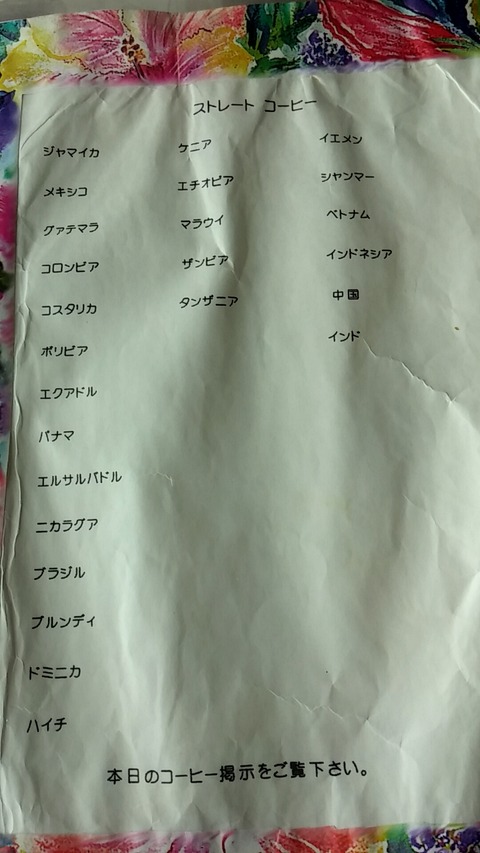 ストレート コーヒー
ジャマイカ
メキシコ
グァテマラ
コロンビア
コスタリカ
ボリビア
エクアドル
パナマ
エルサルバドル
ニカラグア
ブラジル
ブルンディ
ドミニカ
ハイチ
ケニア
エチオピア
マラウイ
ザンビア
タンザニア
イエメン
シャンマー
ベトナム
インドネシア
中国
インド
本日のコーヒー掲示をご覧下さい。